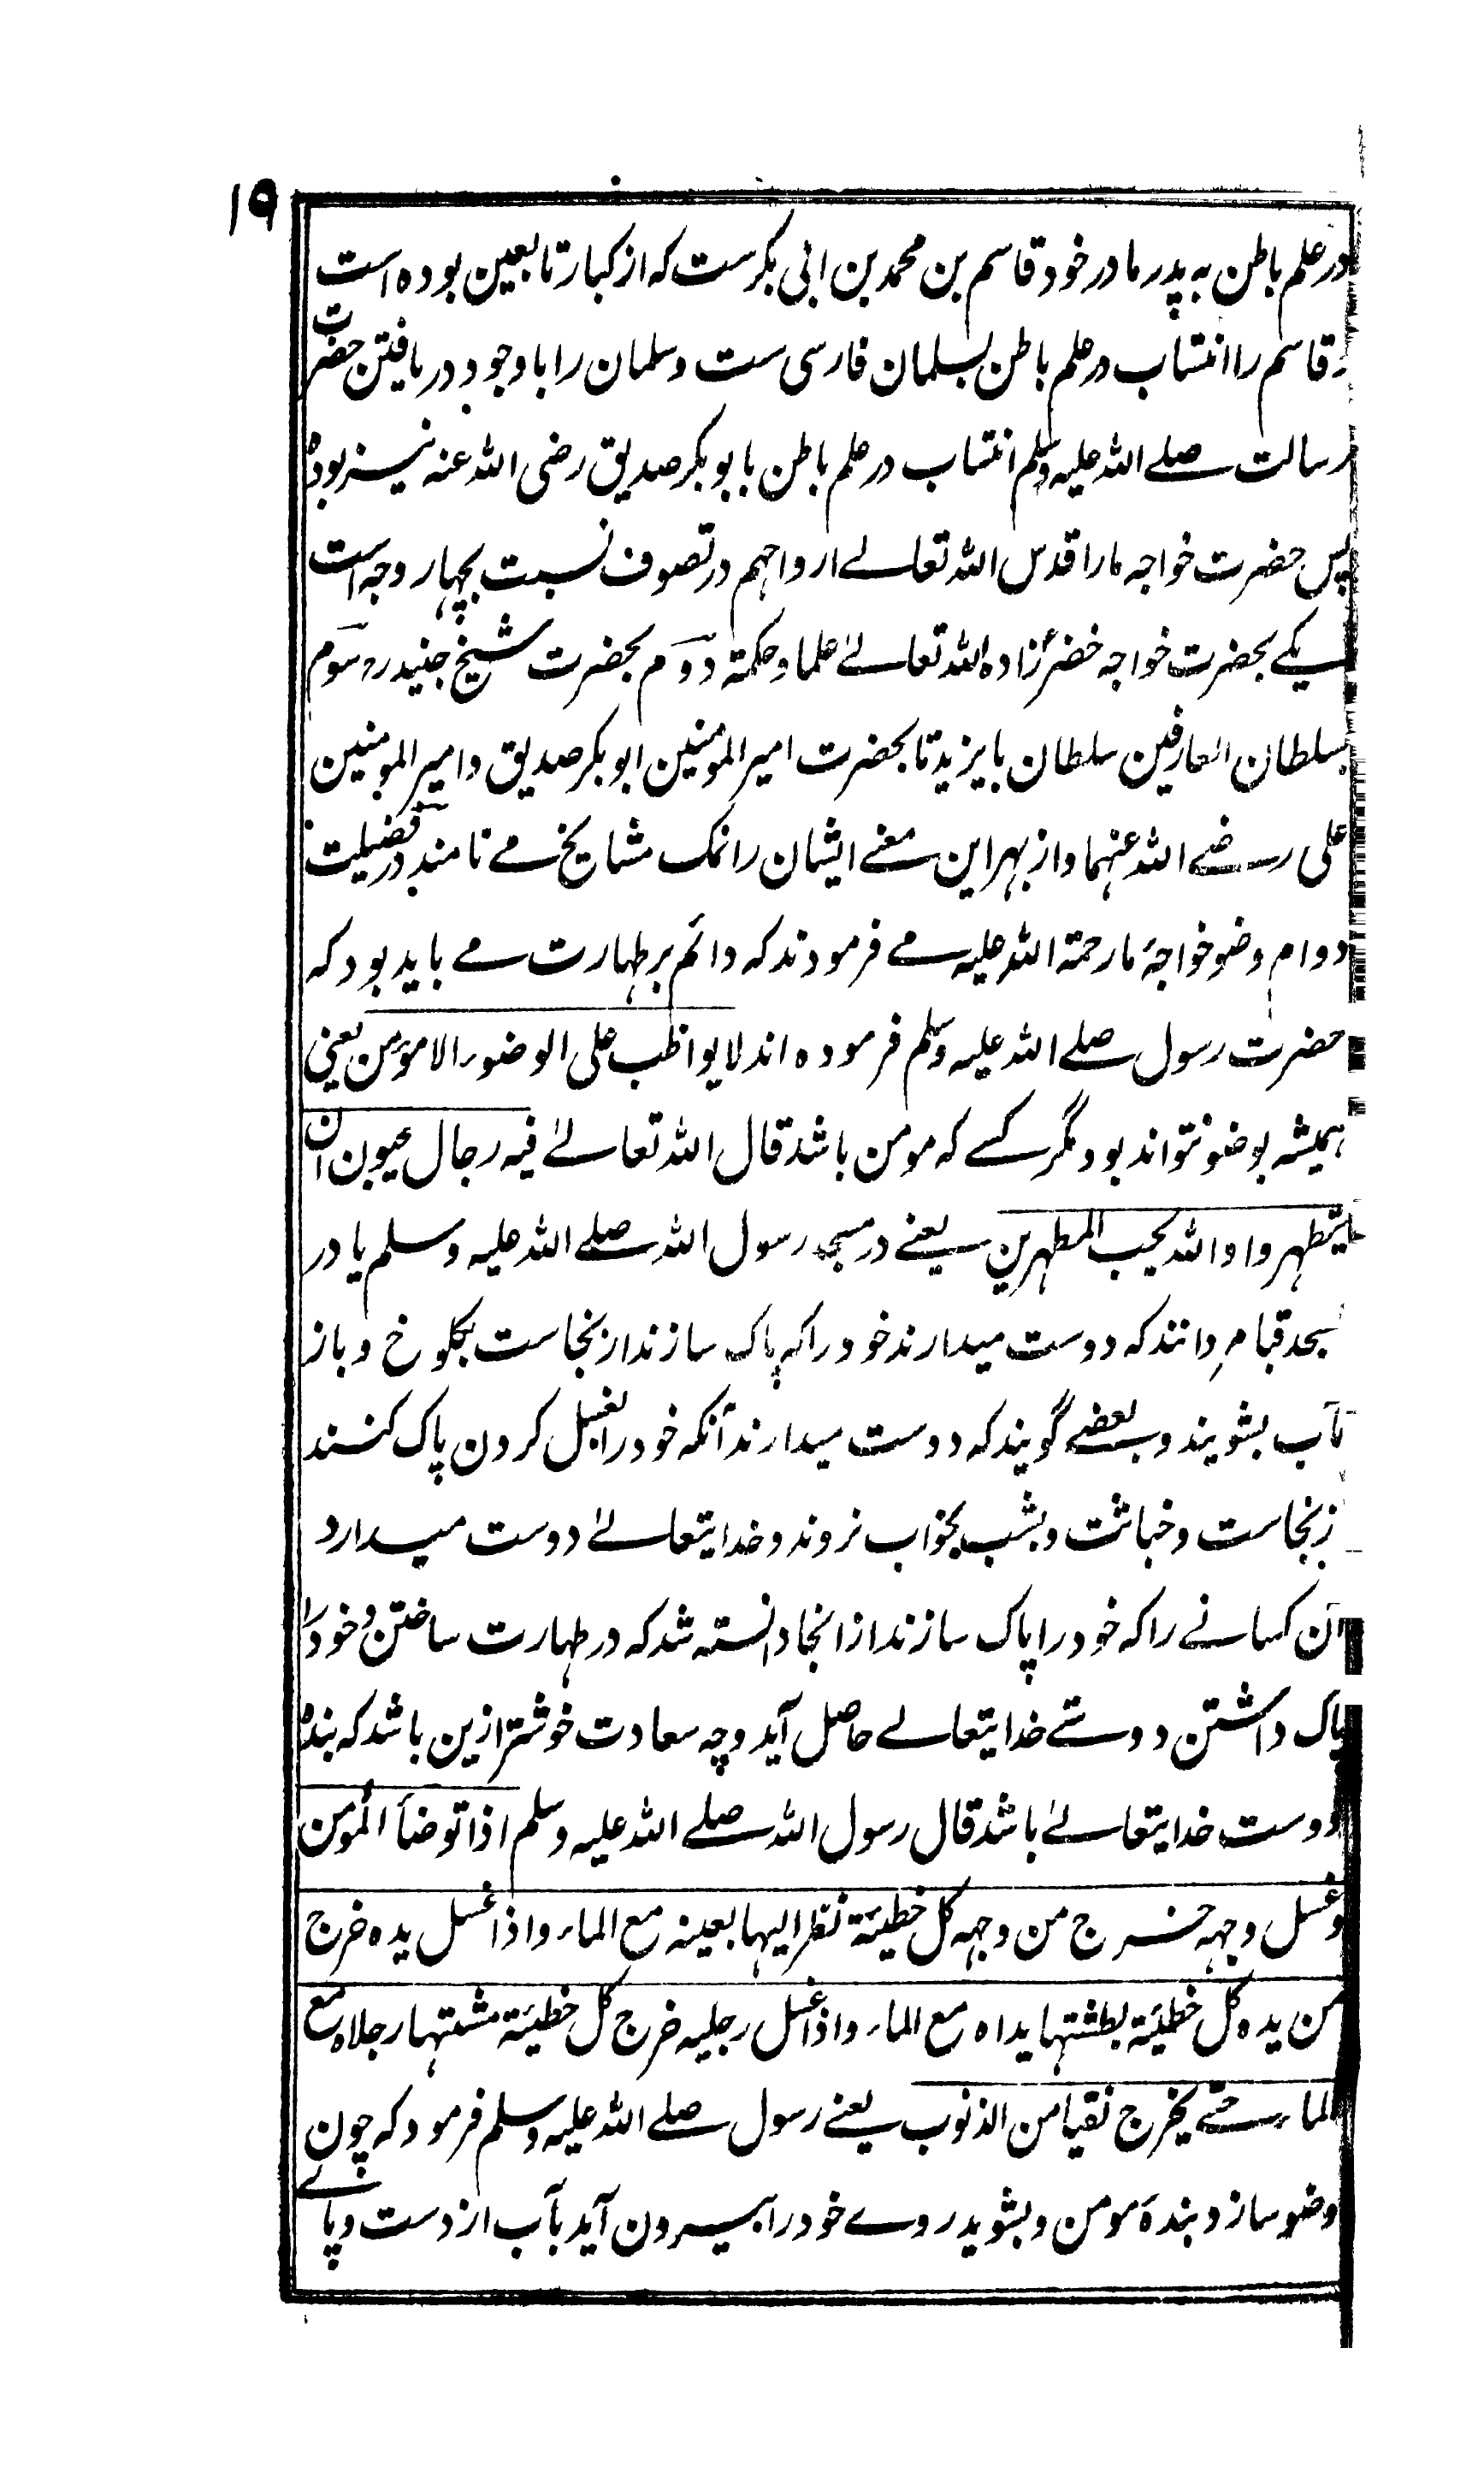 ۱۹
در علم باطن به پدر مادر خود قاسم بن محمد بن ابی بکرست که از کبار تابعین بوده است
و قاسم را انتساب در علم باطن بسلمان فارسی ست و سلمان را با وجود دریافتن حضرت
رسالت صلے اللہ علیہ وسلم انتساب در علم باطن بابوبکر صدیق رضی اللہ عنہ نیز بوده
پس حضرت خواجه ما را قدس اللہ تعالےٰ ارواحهم در تصوف نسبت بچهار وجه است
یکے بحضرت خواجه خضر زاده اللہ تعالےٰ علما و حکمة دوم بحضرت شیخ جنید رح سوم
بسلطان العارفین سلطان بایزید تا بحضرت امیر المومنین ابوبکر صدیق و امیر المومنین
علی رضے اللہ عنهما و از بهر این معنے ایشان را نمک مشایخ مے نامند در فضیلت
دوام وضو خواجهٔ ما رحمة اللہ علیہ مے فرمودند که دائم بر طهارت مے باید بود که
حضرت رسول صلے اللہ علیہ وسلم فرموده اند لا یواظب علی الوضوء الا مؤمن یعنی
همیشه بوضو نتواند بود مگر کسے که مومن باشد قال اللہ تعالےٰ فیه رجال یحبون ان
یتطهروا واللہ یحب المطهرین یعنے در مسجد رسول اللہ صلے اللہ علیہ وسلم یا در
مسجد قبا مردانند که دوست میدارند خود را که پاک سازند از نجاست بکلوخ و باز
بآب بشویند و بعضے گویند که دوست میدارند آنکه خود را بغسل کردن پاک کنند
از نجاست و خباثت و بشب بخواب نروند و خدایتعالےٰ دوست میدارد
آن کسانے را که خود را پاک سازند از انجا دانسته شد که در طهارت ساختن و خود را
پاک داشتن دوستے خدایتعالے حاصل آید و چه سعادت خوشتر ازین باشد که بنده
دوست خدایتعالےٰ باشد قال رسول اللہ صلے اللہ علیہ وسلم اذا توضأ المومن
و غسل وجهه خرج من وجهه کل خطیئة نظر الیها بعینه مع الماء و اذا غسل یده خرج
من یده کل خطیئة بطشتها یداه مع الماء و اذا غسل رجلیه خرج کل خطیئة مشتها رجلاه مع
الماء حتے یخرج نقیا من الذنوب یعنے رسول صلے اللہ علیہ وسلم فرمود که چون
وضو سازد بندهٔ مومن و بشوید روے خود را بیرون آید بآب از دست و پائے